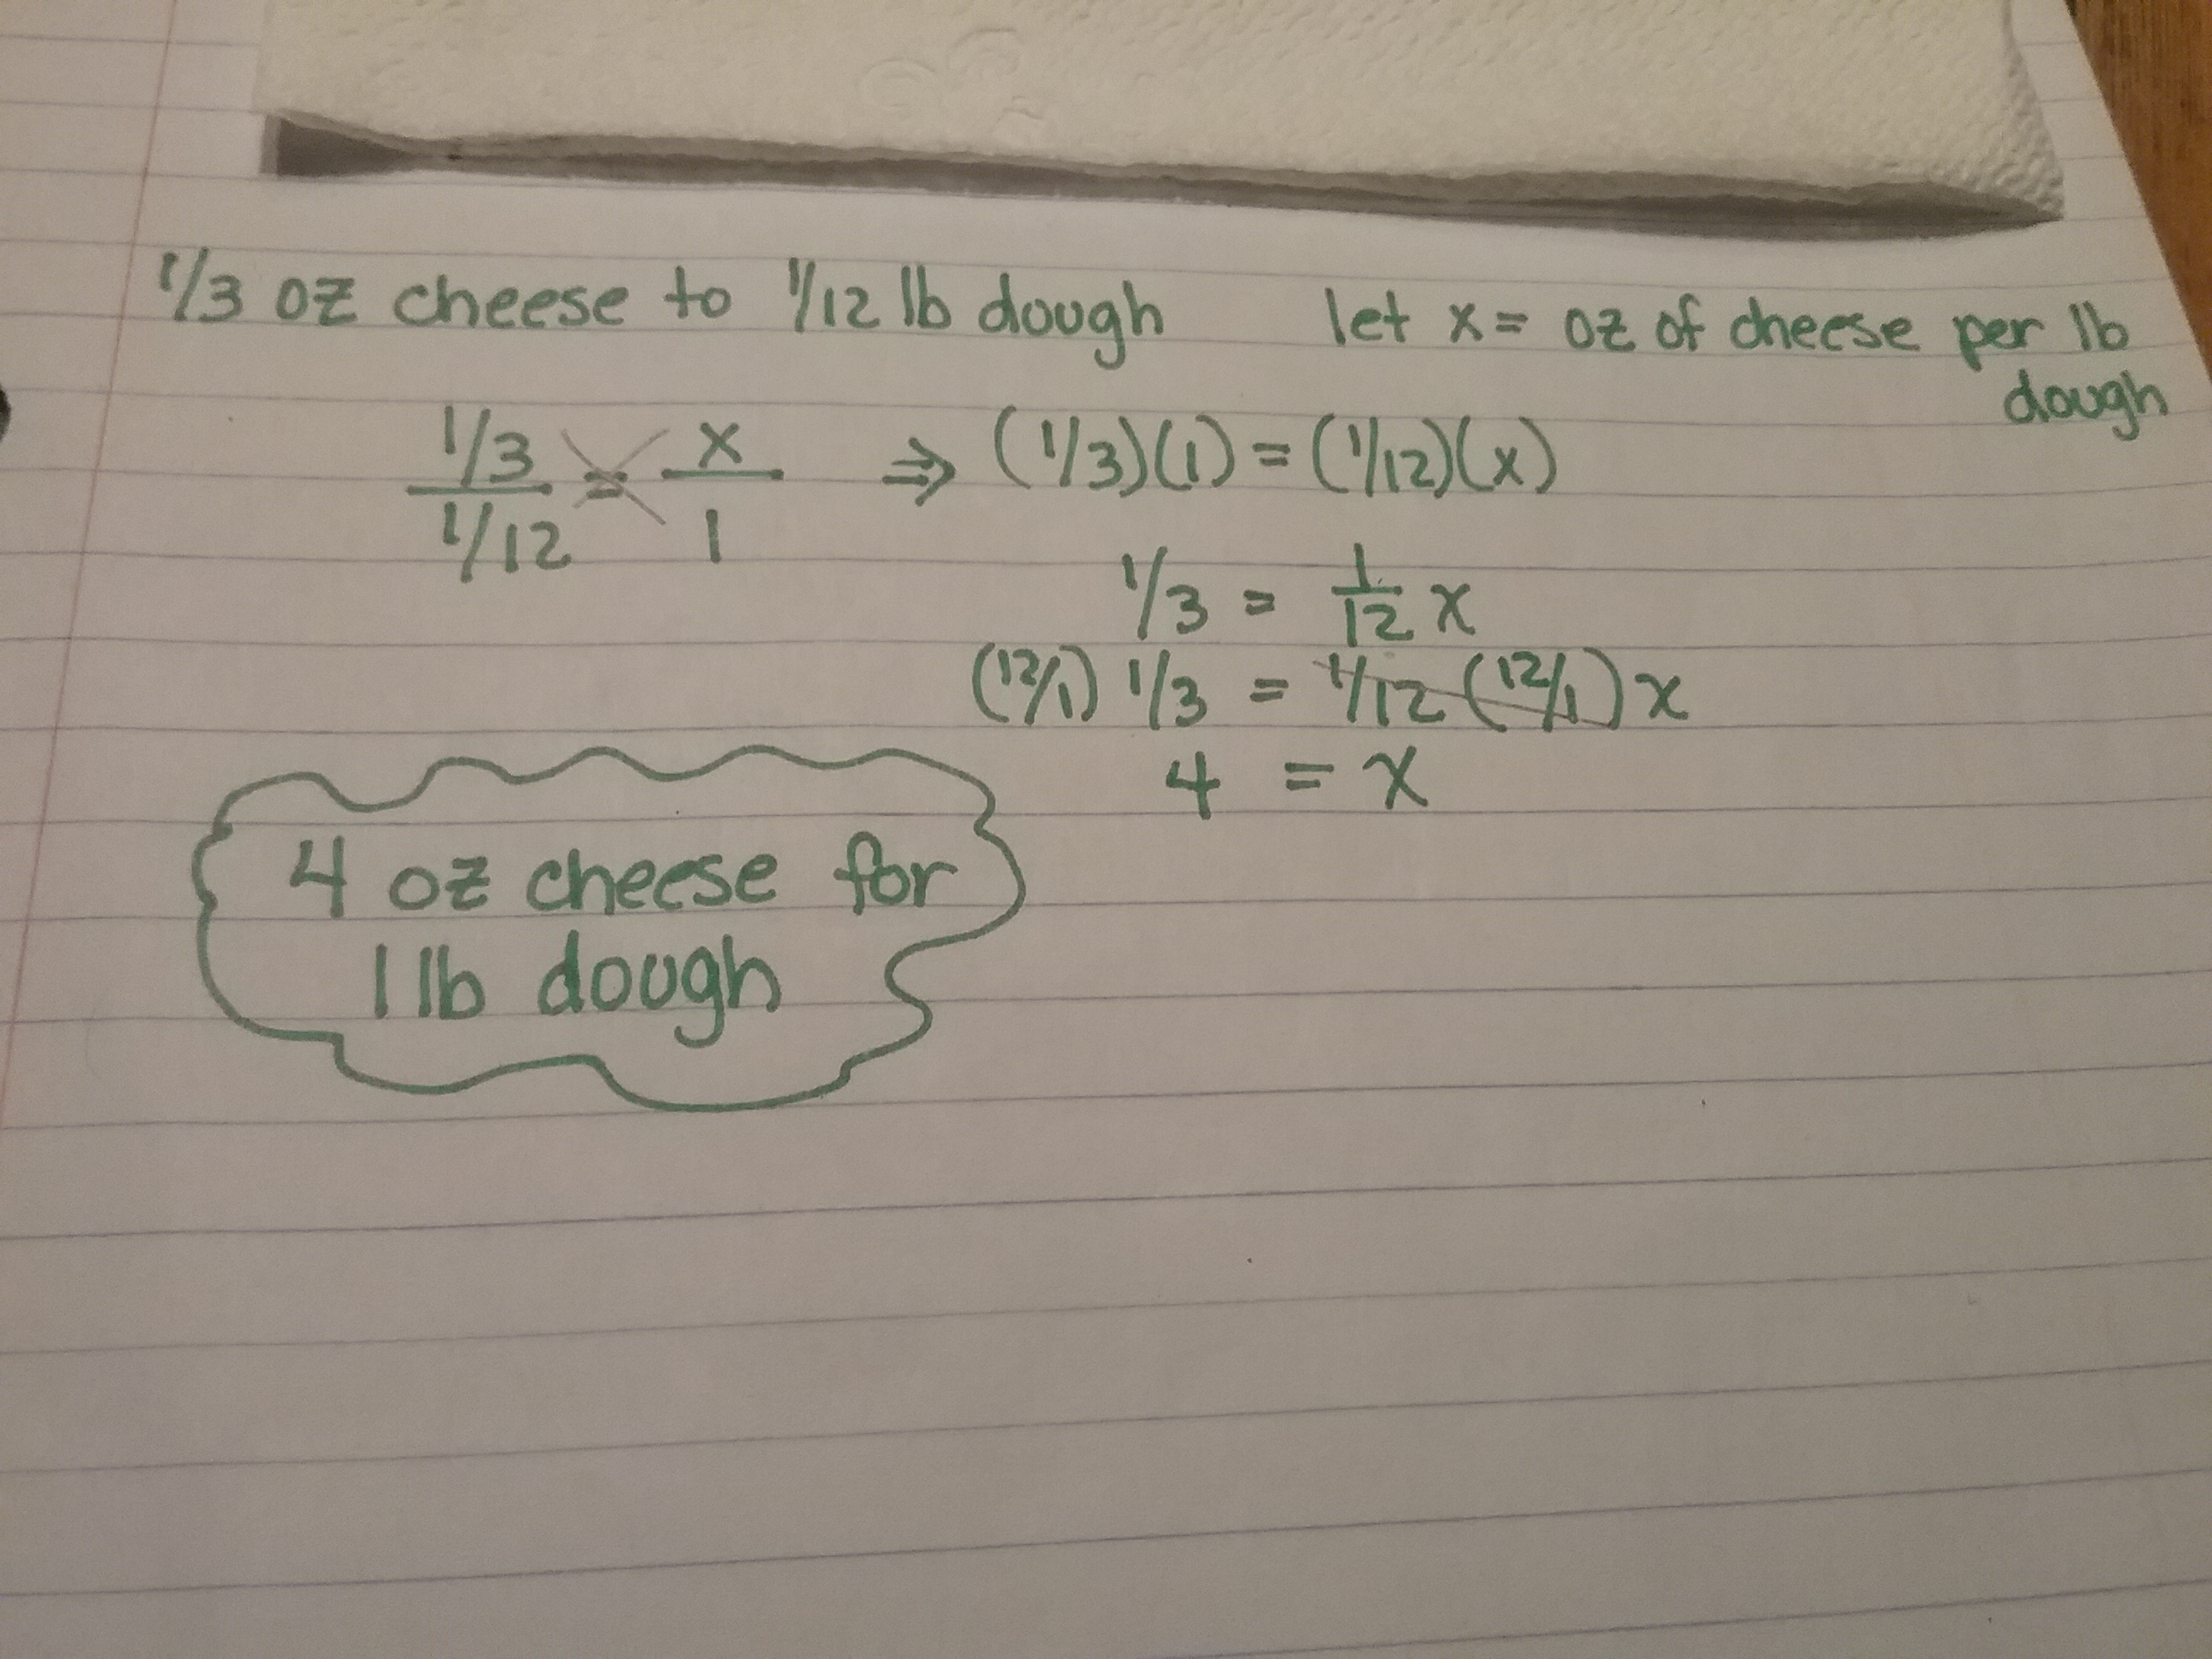 1/3 oz cheese to 1/12 lb dough let x = oz of cheese per lb
dough
1/3 / 1/12 = x / 1 ⇒ (1/3)(1) = (1/12)(x)
1/3 = 1/12 x
(12/1) 1/3 = 1/12 (12/1) x
4 = x
4 oz cheese for
1 lb dough